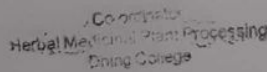 Co-ordinator
Herbal Medicinal Plant Processing
College